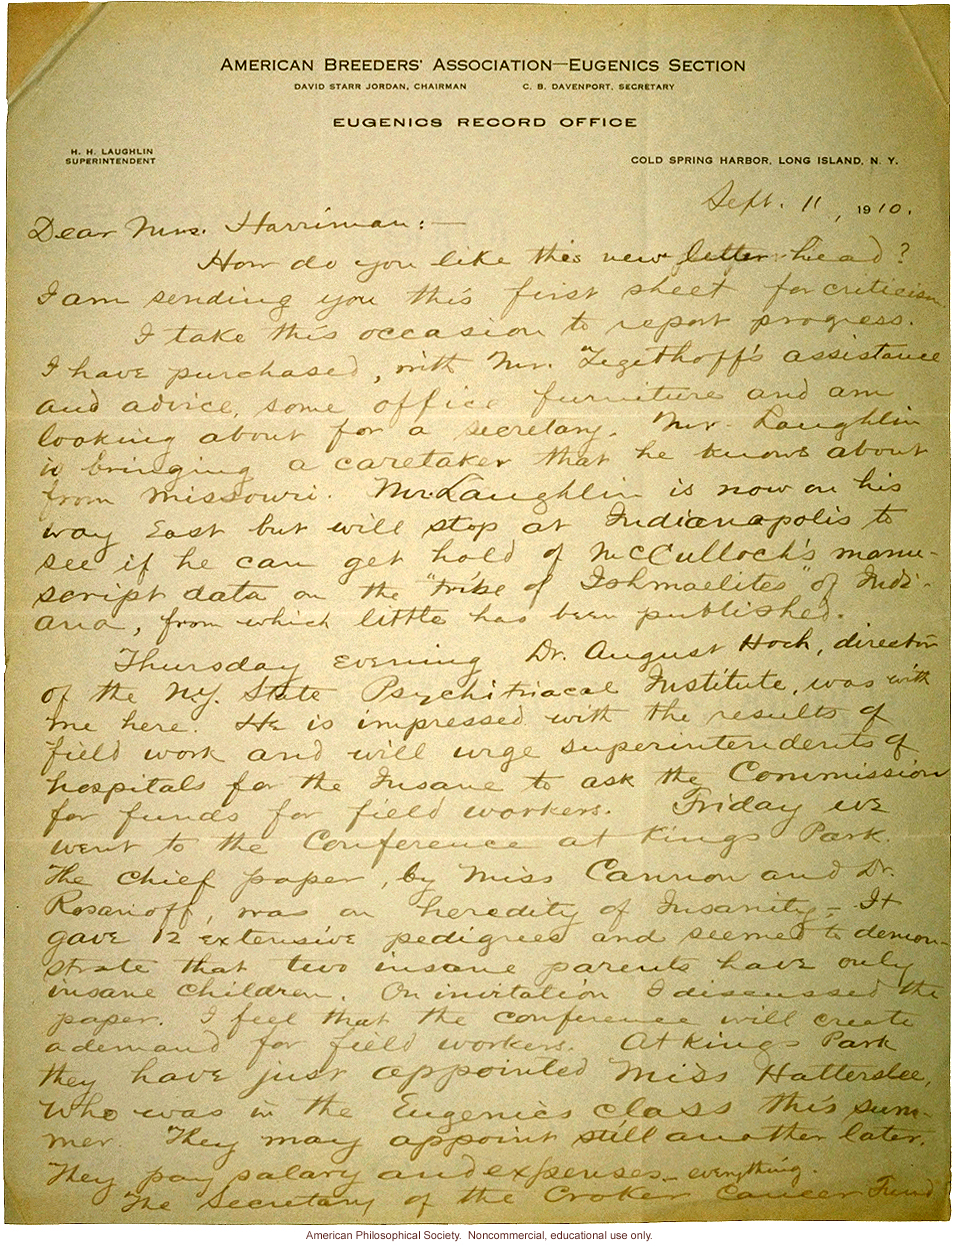 AMERICAN BREEDERS' ASSOCIATION—EUGENICS SECTION
DAVID STARR JORDAN, CHAIRMAN C. B. DAVENPORT, SECRETARY
EUGENICS RECORD OFFICE
H. H. LAUGHLIN
SUPERINTENDENT
COLD SPRING HARBOR, LONG ISLAND, N. Y.
Sept. 11, 1910.
Dear Mrs. Harriman:—
How do you like this new letter head?
I am sending you this first sheet for criticism.
I take this occasion to report progress.
I have purchased, with Mr. Tegethoff's assistance
and advice, some office furniture and am
looking about for a secretary. Mr. Laughlin
is bringing a caretaker that he knows about
from Missouri. Mr. Laughlin is now on his
way East but will stop at Indianapolis to
see if he can get hold of McCulloch's manu-
script data on the "tribe of Ishmaelites" of Indi-
ana, from which little has been published.
Thursday evening Dr. August Hoch, director
of the N.Y. State Psychitriacal Institute, was with
me here. He is impressed with the results of
field work and will urge superintendents of
hospitals for the Insane to ask the Commission
for funds for field workers. Friday we
went to the Conference at Kings Park.
The chief paper, by Miss Cannon and Dr.
Rosanoff, was on heredity of Insanity,- It
gave 12 extensive pedigrees and seemed to demon-
strate that two insane parents have only
insane children. On invitation I discussed the
paper. I feel that the conference will create
a demand for field workers. At Kings Park
they have just appointed Miss Hatterslee,
who was in the Eugenics class this sum-
mer. They may appoint still another later.
They pay salary and expenses - everything.
The Secretary of the Croker Cancer Fund
American Philosophical Society. Noncommercial, educational use only.